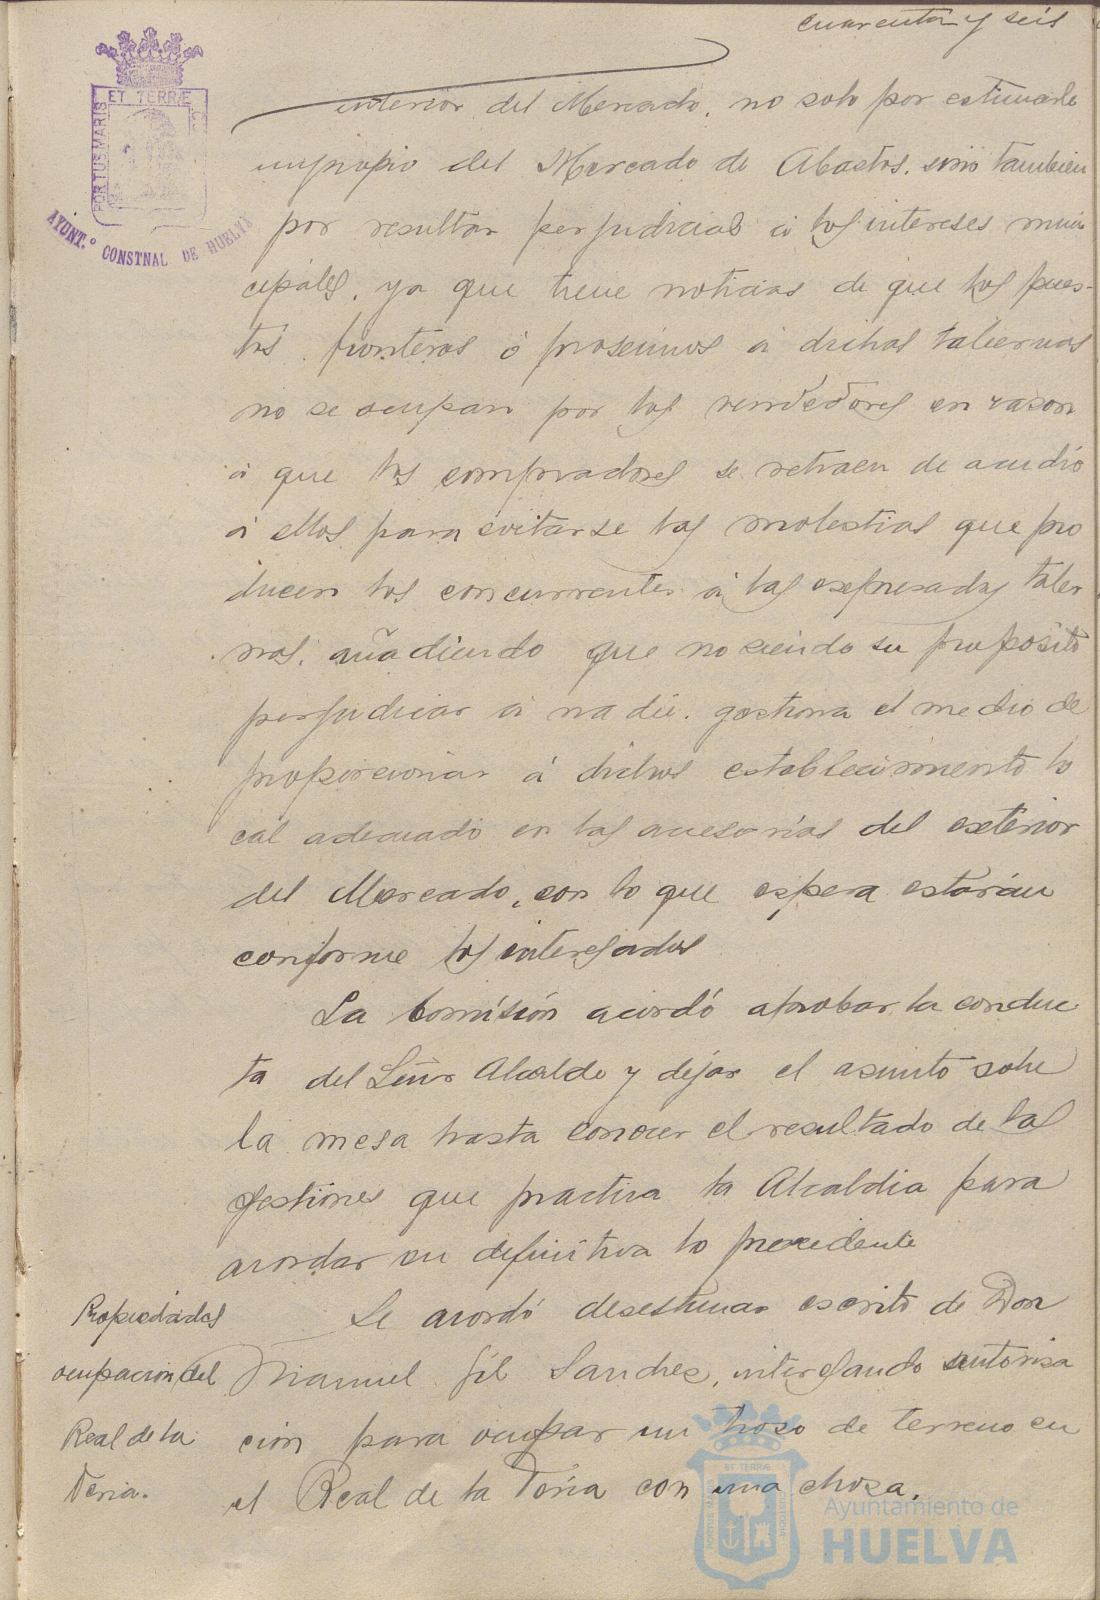 cuarenta y seis
ET TERRÆ
PORTUS MARIS
AYUNT.º CONSTNAL DE HUELVA
interior del Mercado, no solo por estimarlo
impropio del Mercado de Abastos, sino tambien
por resultar perjudicial á los intereses muni
cipales, ya que tiene noticias de que los pues-
tos fronteros ó proseimos á dichas tabernas
no se ocupan por los vendedores en rason
á que los compradores se retraen de acudir
á ellos para evitarse las molestias que pro
ducen los concurrentes á las expresadas taber
nas, añadiendo que no siendo su proposito
perjudicar á nadie, gestiona el medio de
proporcionar á dichos establecimiento lo
cal adecuado en las accesorias del exterior
del Mercado, con lo que espera estarán
conforme los interesados
La Comisión acordó aprobar la conduc
ta del Señor Alcalde y dejar el asunto sobre
la mesa hasta conocer el resultado de las
gestiones que practica la Alcaldia para
acordar en definitiva lo procedente
Propiedades
ocupacion del
Real de la
Feria.
Se acordó desestimar escrito de Don
Manuel Gil Sanchez, interesando autorisa
cion para ocupar un troso de terreno en
el Real de la Feria con una chosa.
ET TERRÆ
Ayuntamiento de
HUELVA